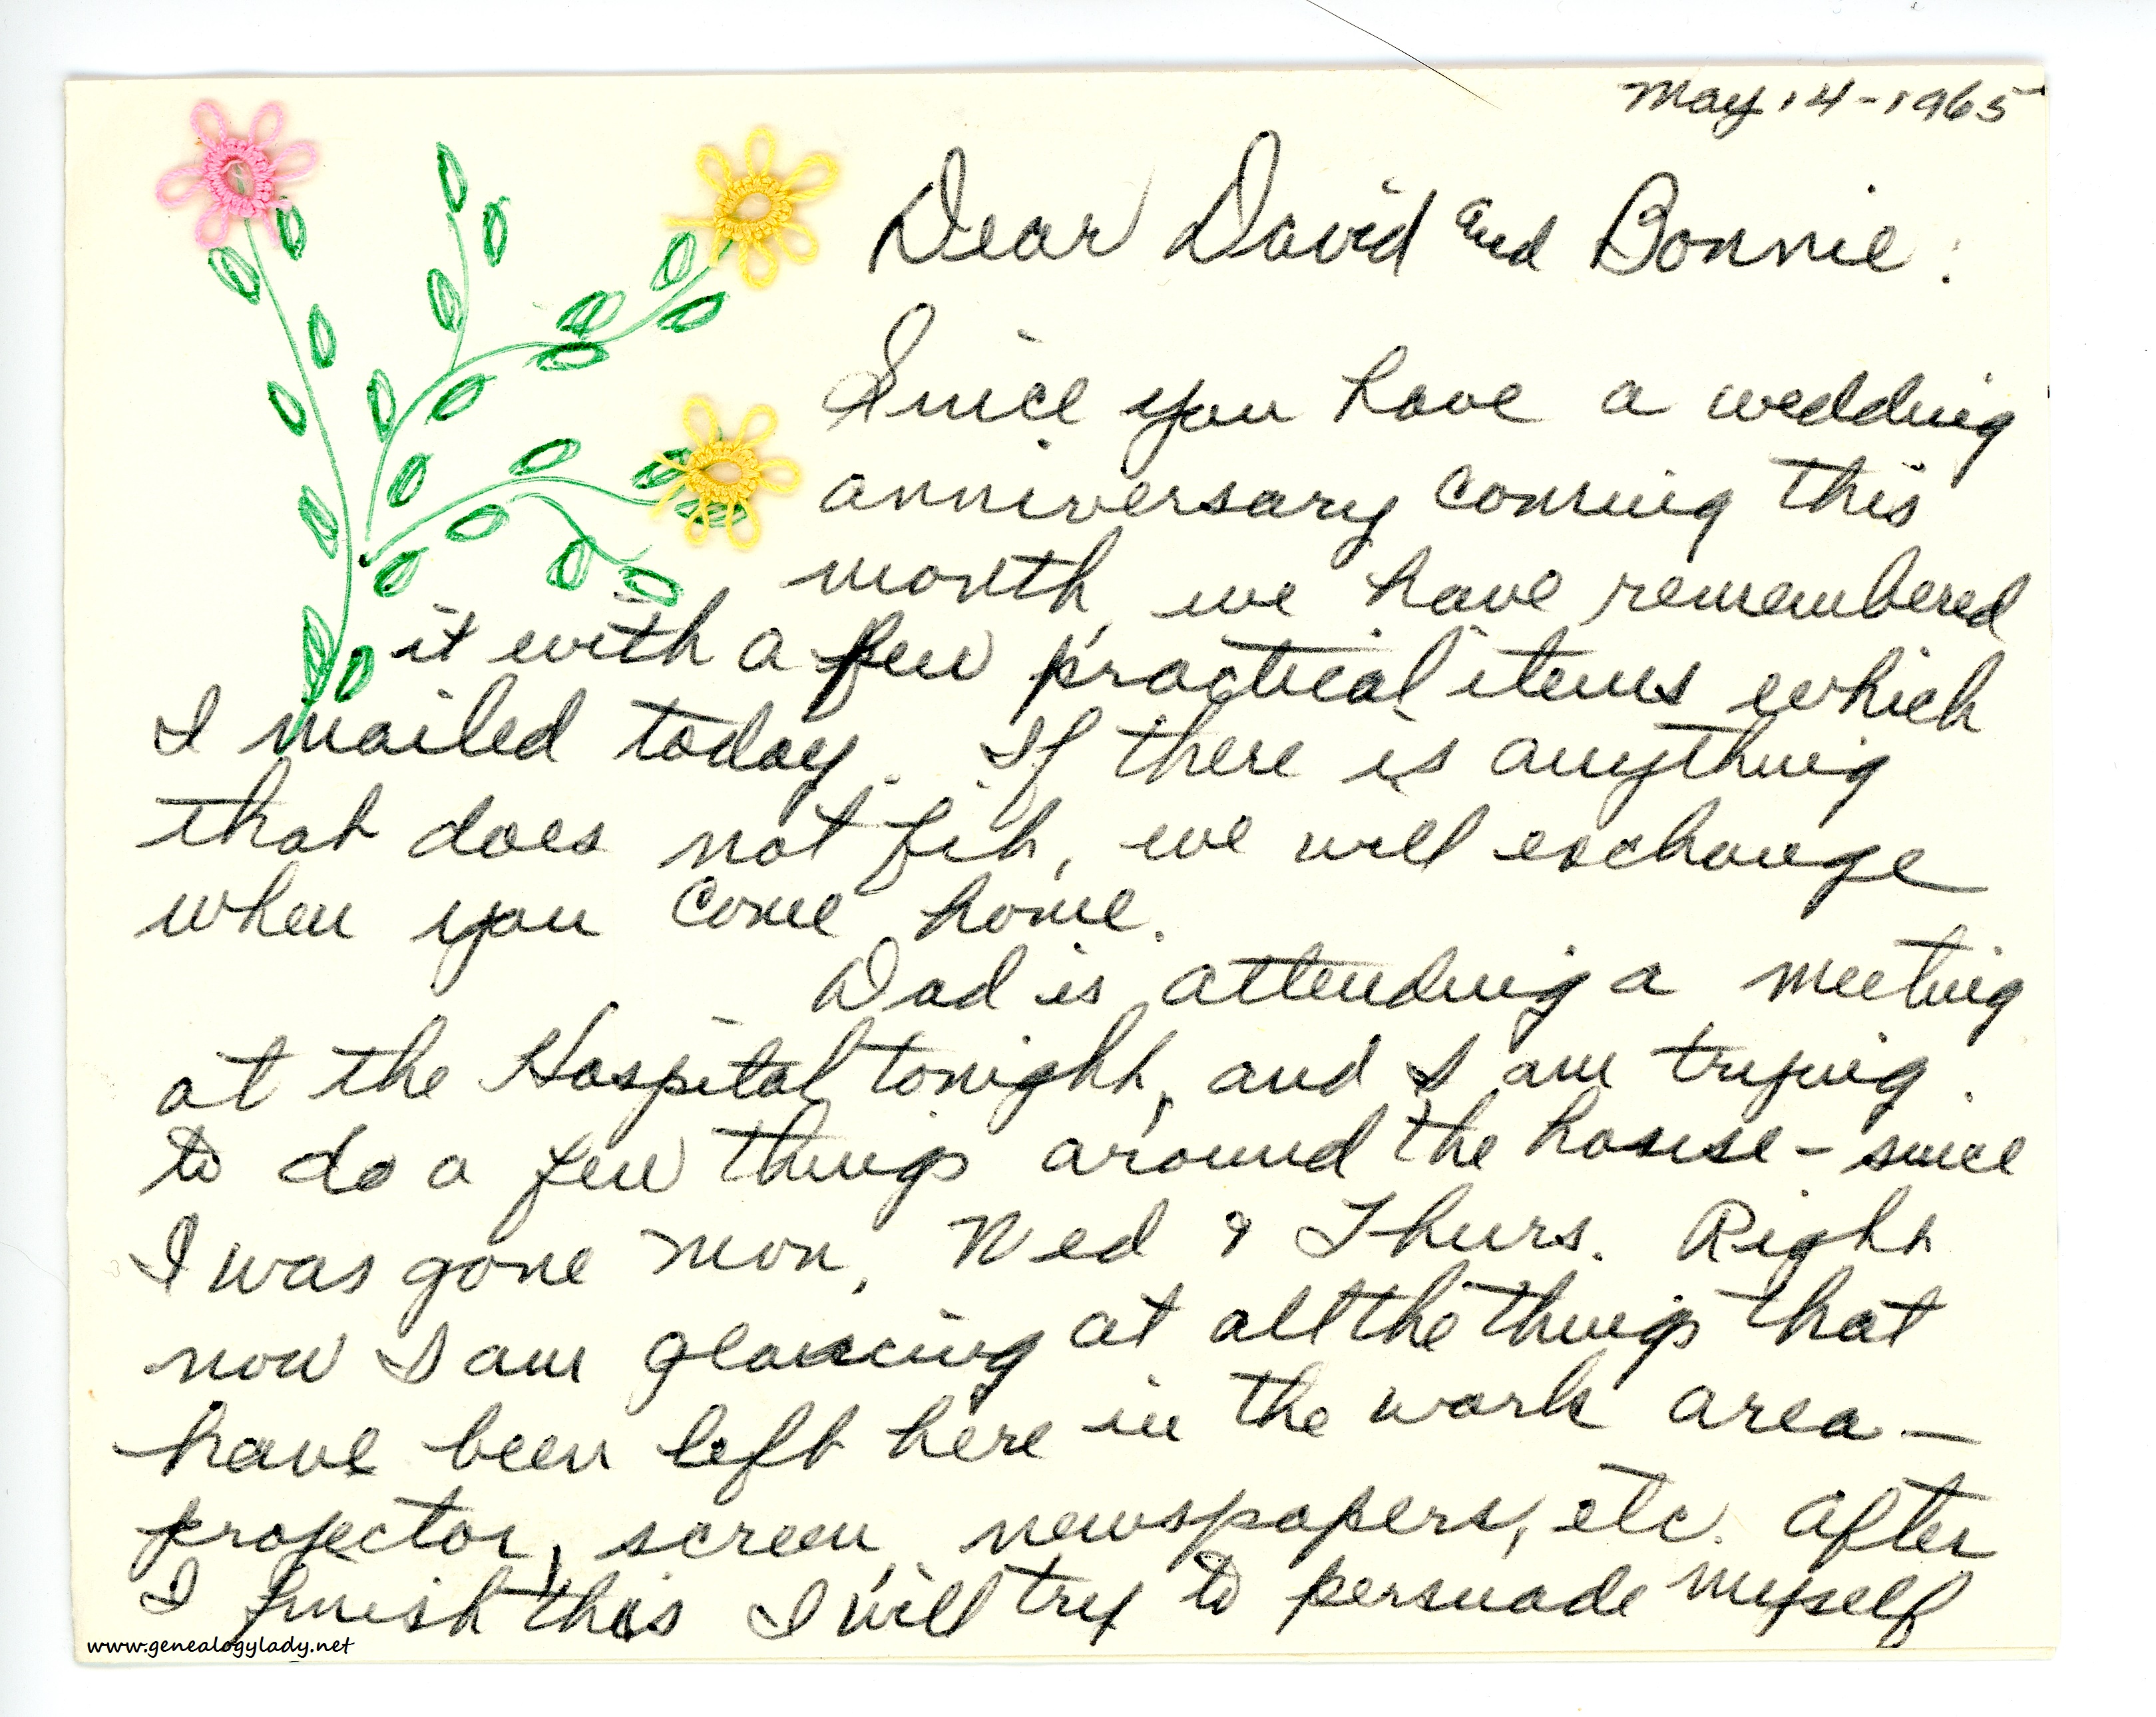 May 14-1965
Dear David and Bonnie:
Since you have a wedding
anniversary coming this
month, we have remembered
it with a few practical items which
I mailed today. If there is anything
that does not fit, we will exchange
when you come home.
Dad is attending a meeting
at the Hospital tonight, and I am trying
to do a few things around the house - since
I was gone Mon, Wed & Thurs. Right
now I am glancing at all the things that
have been left here in the work area —
projector, screen, newspapers, etc. After
I finish this I will try to persuade myself
www.genealogylady.net